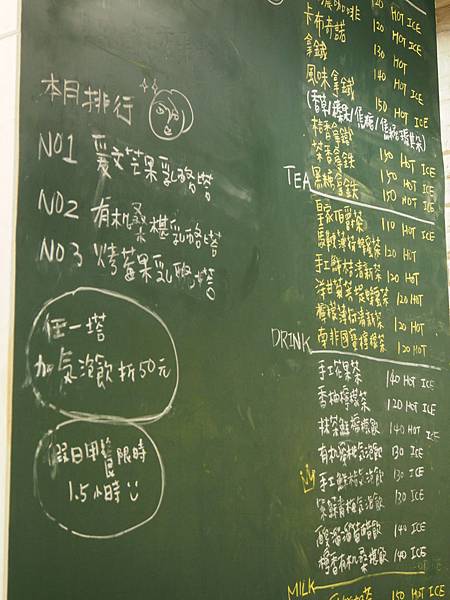 本月排行
NO1 愛文芒果乳酪塔
NO2 有机桑椹乳酪塔
NO3 烤莓果乳酪塔
任一塔
加氣泡飲折50元
假日用餐限時
1.5小時
咖啡 120 HOT ICE
卡布奇諾 120 HOT ICE
拿鐵 130 HOT
風味拿鐵 140 HOT ICE
150 HOT ICE
桔香拿鐵 150 HOT ICE
茶香拿鐵 150 HOT ICE
黑糖拿鐵 150 HOT ICE
TEA
皇家伯爵茶 110 HOT ICE
120 HOT
手工鮮桔清新茶 120 HOT
洋甘菊 120 HOT
檸檬薄荷清新茶 120 HOT
南非國寶檸檬茶 120 HOT
DRINK
手工花果茶 140 HOT ICE
香柚檸檬茶 120 HOT ICE
抹茶 140 HOT ICE
有机桑椹氣泡飲 130 ICE
手工鮮桔氣泡飲 130 ICE
氣泡飲 130 ICE
140 ICE
檸香有机桑椹飲 140 ICE
MILK
150 HOT ICE